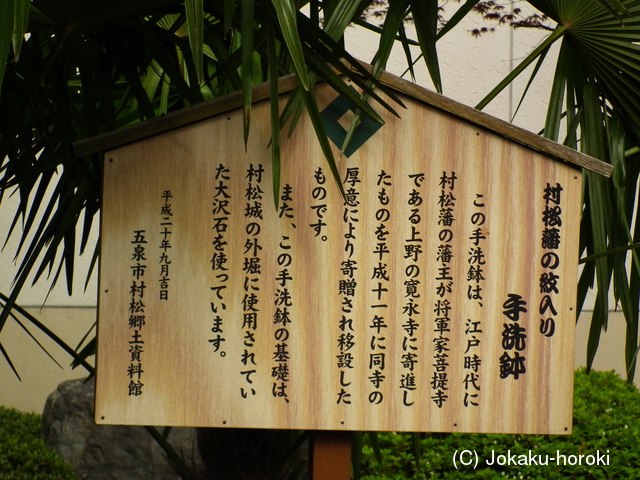 村松藩の紋入り
手洗鉢
この手洗鉢は、江戸時代に
村松藩の藩主が将軍家菩提寺
である上野の寛永寺に寄進し
たものを平成十一年に同寺の
厚意により寄贈され移設した
ものです。
また、この手洗鉢の基礎は、
村松城の外堀に使用されてい
た大沢石を使っています。
平成二十年九月吉日
五泉市村松郷土資料館
(C) Jokaku-horoki